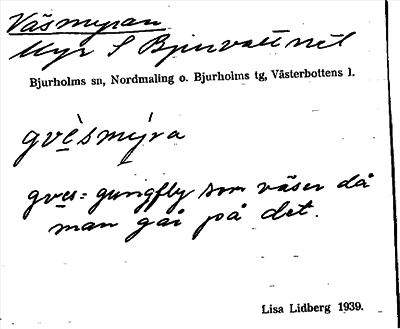 Väsmyran
Myr S Bjurvattnet
Bjurholms sn, Nordmaling o. Bjurholms tg, Västerbottens l.
gvèsmýra
gves = gungfly som väser då
man går på det.
Lisa Lidberg 1939.